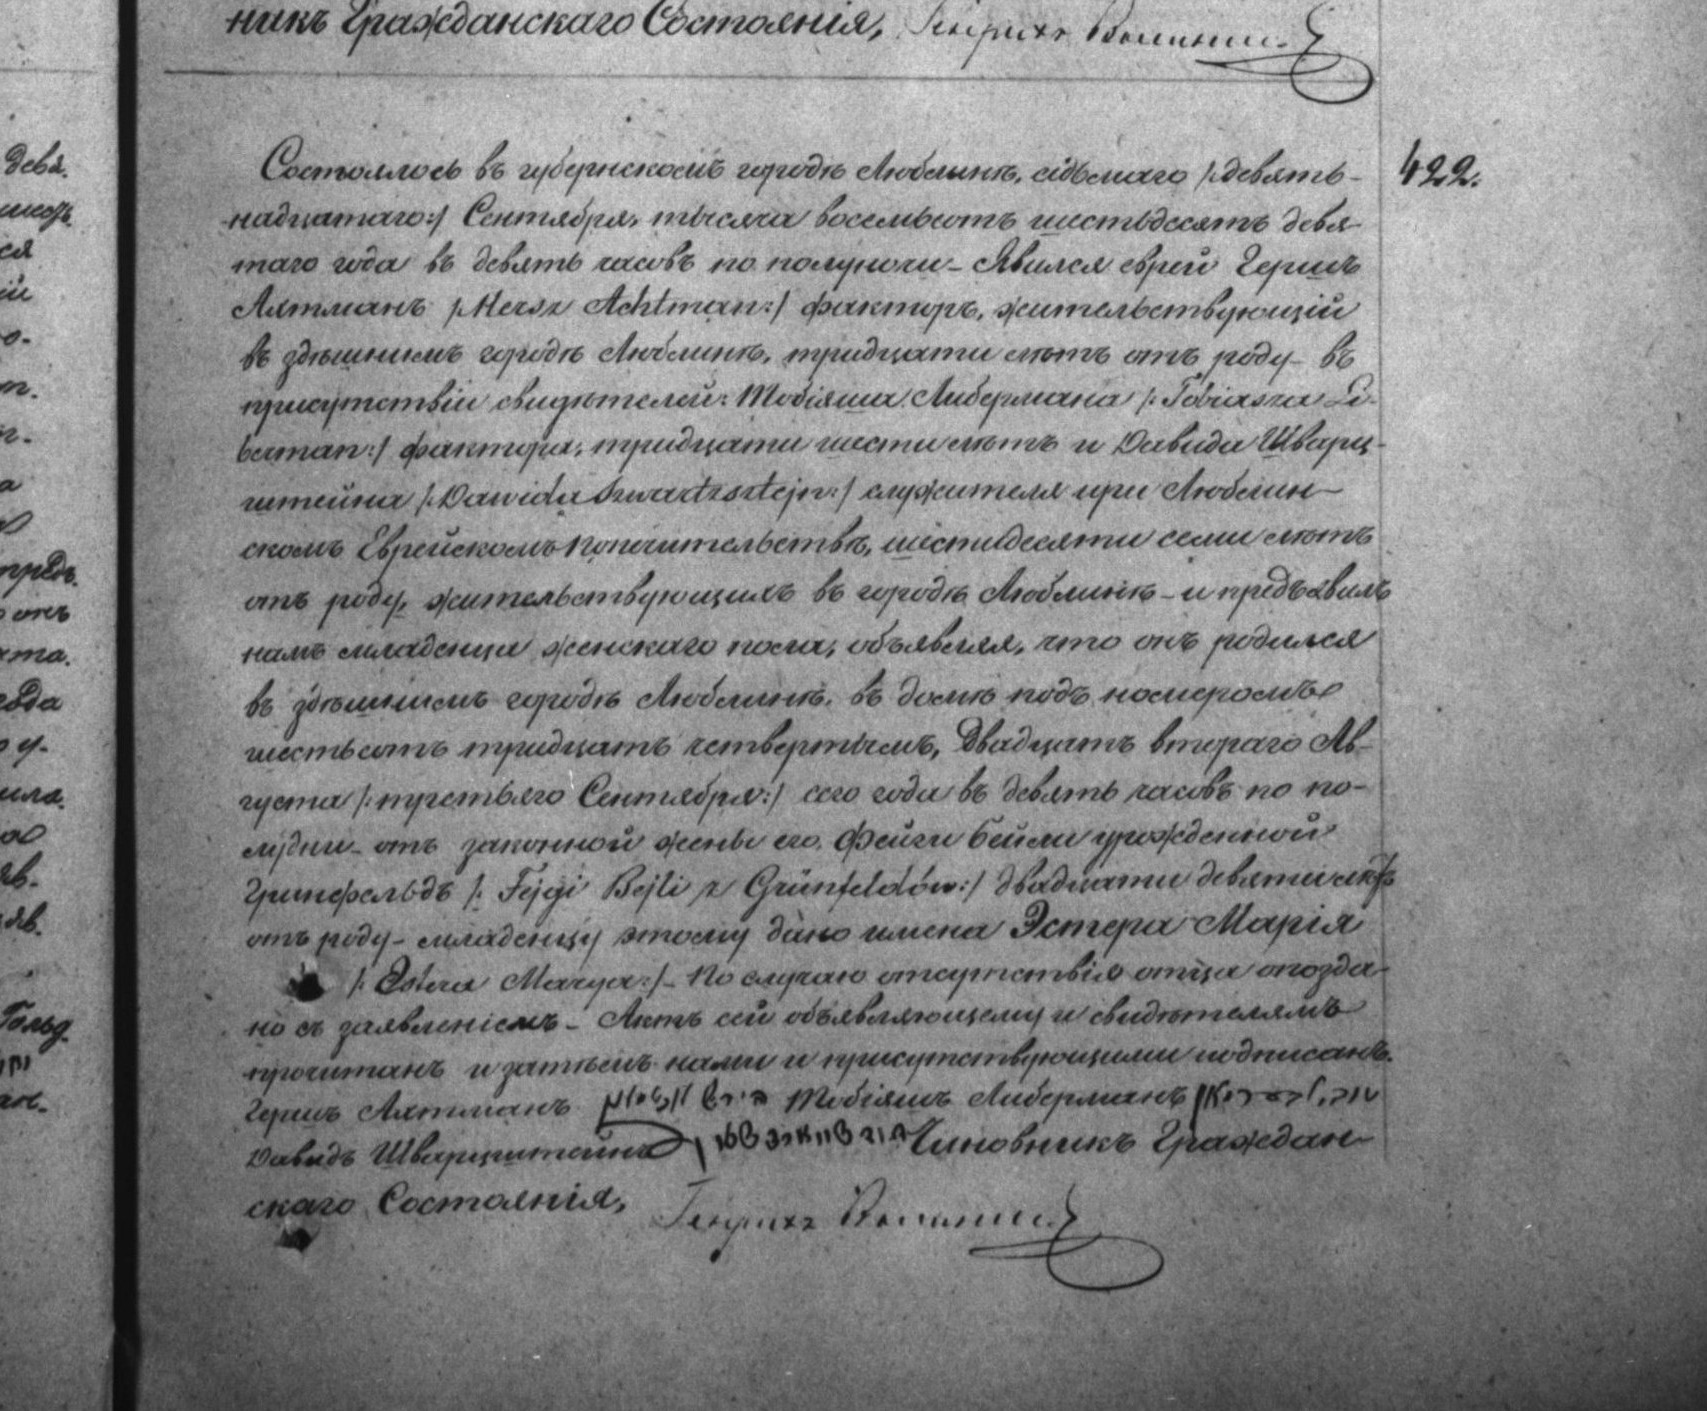 никъ Гражданскаго Состоянія,
422.
Состоялось въ губернскомъ городѣ Люблинѣ, седьмаго /:девять-
надцатаго:/ Сентября, тысяча восемьсотъ шестьдесятъ девя-
таго года въ девять часовъ по полуночи – Явился еврей Гершъ
Ахтманъ /:Hersz Achtman:/ факторъ, жительствующій
въ здѣшнемъ городѣ Люблинѣ, тридцати лѣтъ отъ роду – въ
присутствіи свидѣтелей: Тобіяша Либермана /:Tobiasza Li-
berman:/ фактора, тридцати шести лѣтъ и Давида Шварц-
штейна /:Dawida Szwartzsztejn:/ служителя при Люблин-
скомъ Еврейскомъ Попечительствѣ, шестидесяти семи лѣтъ
отъ роду, жительствующихъ въ городѣ Люблинѣ – и предъявилъ
намъ младенца женскаго пола, объявляя, что онъ родился
въ здѣшнемъ городѣ Люблинѣ, въ домѣ подъ номеромъ
шестьсотъ тридцать четвертымъ, Двадцать втораго Ав-
густа /:третьяго Сентября:/ сего года въ девять часовъ по по-
лудни – отъ законной жены его, Фейги Бейли урожденной
Гринфельдъ /: Fejgi Bejli z Grünfeldów:/ двадцати девяти лѣтъ
отъ роду – младенцу этому дано имена Эстера Марія
/: Estera Marya:/ – По случаю отсутствія отца опозда-
но съ заявленіемъ – Актъ сей объявляющему и свидѣтелямъ
прочитанъ и затѣмъ нами и присутствующими подписанъ.
Гершъ Ахтманъ Тобіяшъ Либерманъ
Давидъ Шварцштейнъ Чиновникъ Граждан-
скаго Состоянія,